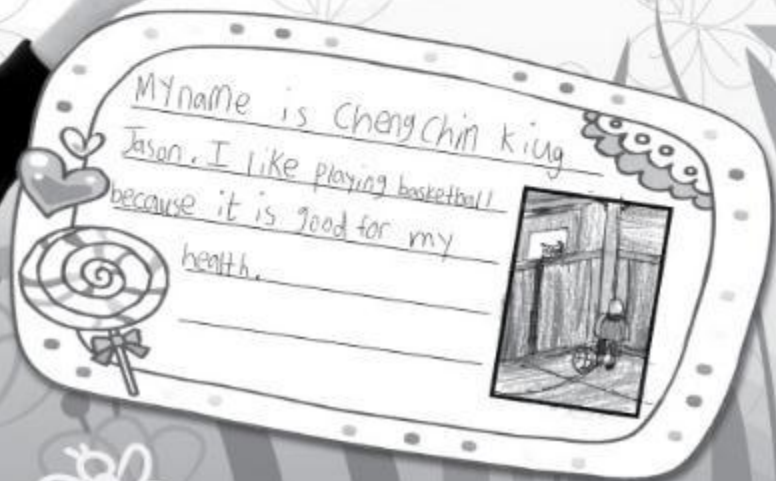 MY name is Cheng Chin kiug
Jason. I like playing basketball
because it is good for my
health.